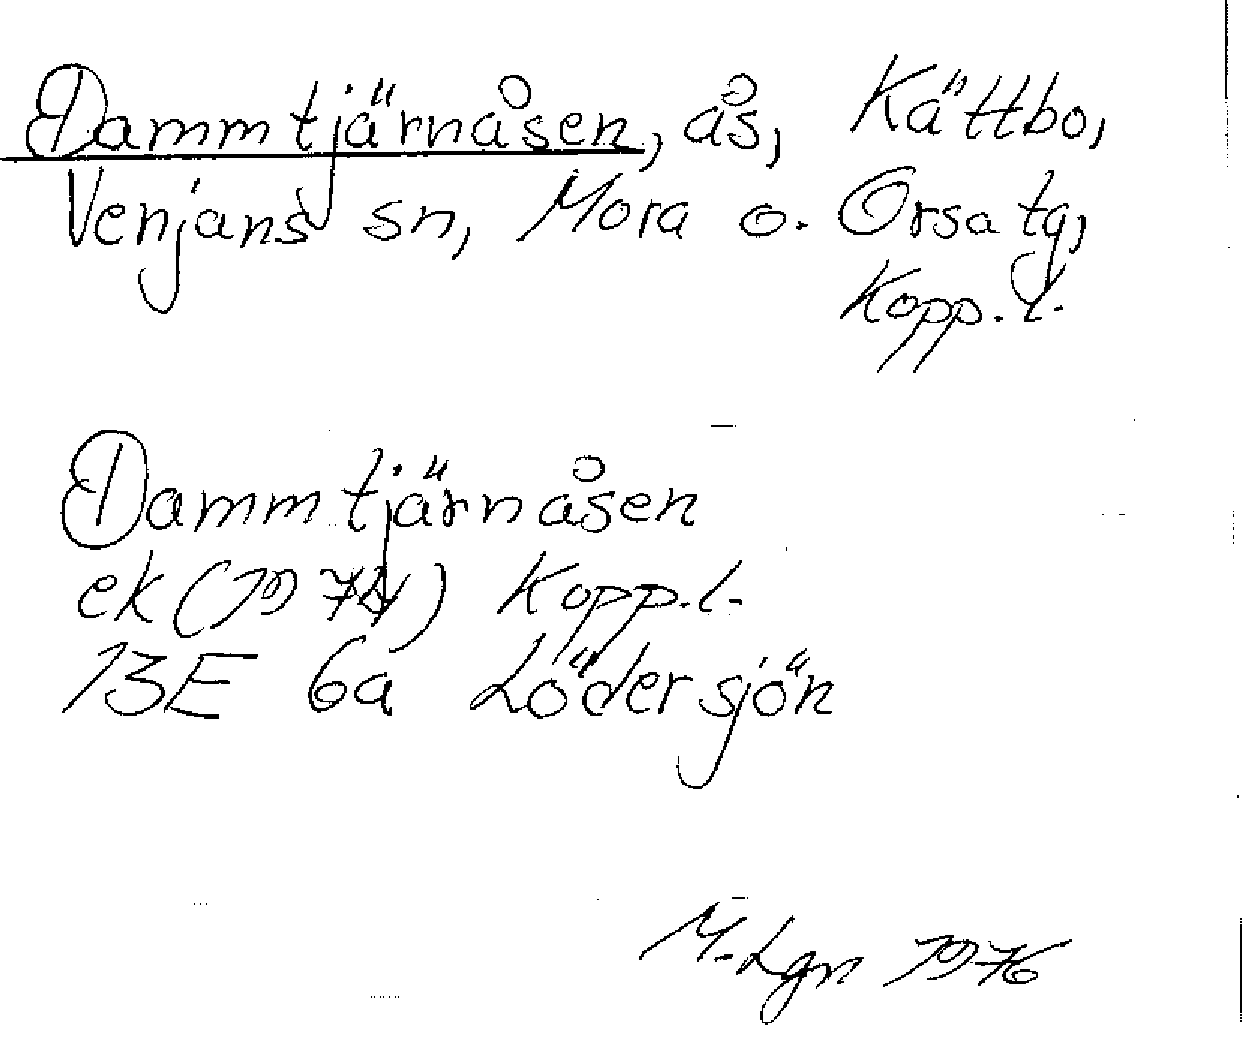 Dammtjärnåsen, ås, Kättbo,
Venjans sn, Mora o. Orsa tg,
Kopp. l.
Dammtjärnåsen
ek (1974) Kopp. l.
13E 6a Lödersjön
M. Lgn 1976